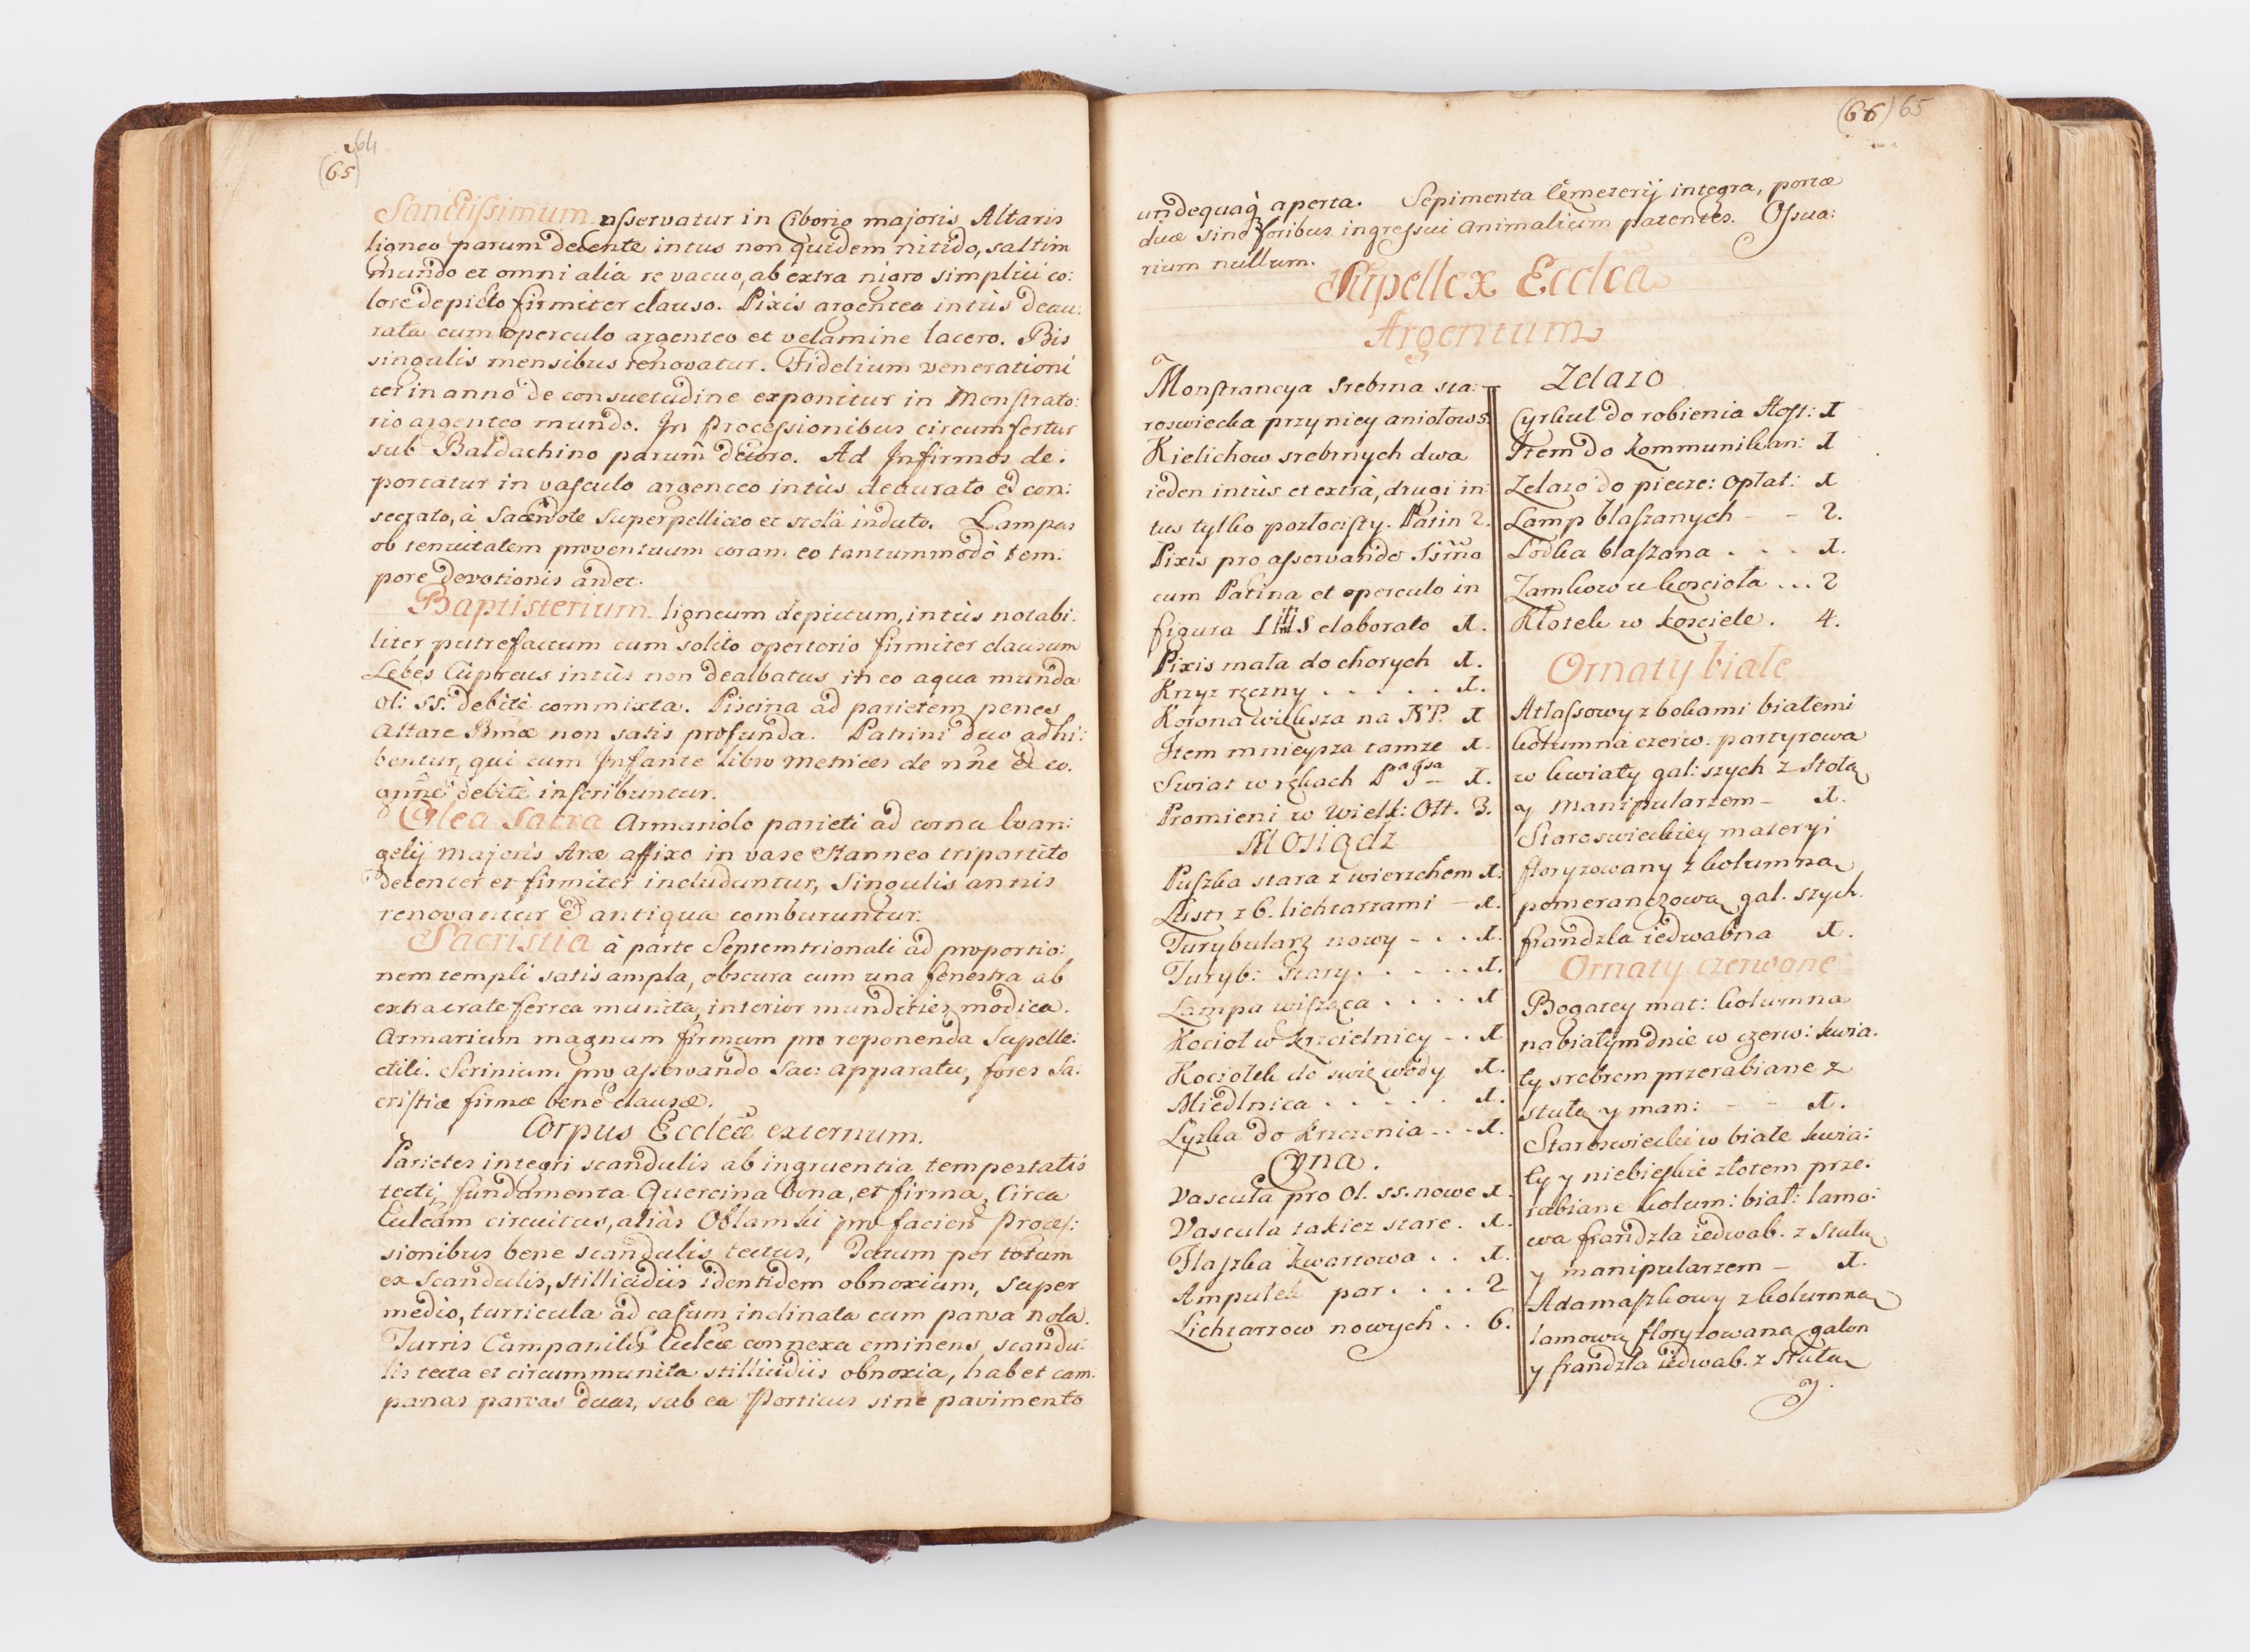 64
(65)
Sanctissimum asservatur in Ciborio majoris Altaris
ligneo parum decente intus non quidem nitido, saltim
mundo et omni alia re vacuo, ab extra nigro simplici co:
lore depicto firmiter clauso. Pixis argentea intùs deau:
rata cum operculo argenteo et velamine lacero. Bis
singulis mensibus renovatur. Fidelium venerationi
ter in anno de consuetudine exponitur in Monstrato:
rio argenteo mundo. In Processionibus circumfertur
sub Baldachino parum decoro. Ad Infirmos de:
portatur in vasculo argenteo intùs deaurato et con:
secrato, à Sacerdote superpelliceo et stola induto. Lampas
ob tenuitatem proventuum coram eo tantummodò tem:
pore devotionis ardet.
Baptisterium ligneum depictum, intùs notabi:
liter putrefactum cum solito opertorio firmiter clausum
Lebes Cupreus intùs non dealbatus in eo aqua munda
ol: ss. debitè commixta. Piscina ad parietem penes
Altare Bmæ non satis profunda. Patrini duo adhi:
bentur, qui cum Infante libro Metrices de nne et co:
gnñe debitè inscribuntur.
Olea Sacra Armariolo parieti ad cornu Evan:
gelij Majoris Aræ affixo in vase stanneo tripartito
decenter et firmiter includuntur, singulis annis
renovantur et antiqua comburuntur.
Sacristia à parte Septemtrionali ad proportio:
nem templi satis ampla, obscura cum una fenestra ab
extra crate ferrea munita, interior mundities modica.
Armarium magnum firmum pro reponenda Supelle:
ctili. Scrinium pro asservando Sac: apparatu, fores Sa:
cristiæ firmæ bene clausæ.
Corpus Ecclæ externum.
Parietes integri scandulis ab ingruentia tempestatis
tecti, fundamenta Quercina bona, et firma, Circa
Ecclam circuitus, aliàs Obłamki pro faciend Proces:
sionibus bene scandulis tectus, Tectum per totum
ex scandulis, stillicidiis identidem obnoxium, super
medio, turricula ad casum inclinata cum parva nola.
Turris Campanilis Ecclæ connexa eminens, scandu:
lis tecta et circummunita stillicidiis obnoxia, habet cam:
panas parvas duas, sub ea Porticus sine pavimento
(66) 65
undequaq; aperta. Sepimenta Cemeterij integra, portæ
duæ sine foribus ingressui animalium patentes. Ossua:
rium nullum.
Supellex Ecclæ
Argentum
Monstrancya srebrna sta:
roswiecka przy niey aniołow 5.
Kielichow srebrnych dwa
ieden intùs et extrà, drugi in:
tus tylko pozłocisty. Patin 2.
Pixis pro asservando Ssmo
cum Patina et operculo in
figura IHS elaborato 1.
Pixis mała do chorych 1.
Krzyz ręczny . . . . . 1.
Korona większa na NP. 1
Item mnieysza tamze 1.
Swiat w rękach 1.
Promieni w Wielk: Ołt. 3.
Mosiądz
Puszka stara z wierzchem 1.
Lustr z 6. lichtarzami – 1.
Turybularz nowy - . . 1.
Turyb: stary . . . . . 1.
Lampa wisząca . . . . 1
Kocioł w krzcielnicy - . 1
Kociołek do swię wody 1.
Miednica . . . . . 1.
Łyzka do krzczenia . . - 1.
Cyna.
Vascula pro Ol. ss. nowe 1.
Vascula takiez stare . 1.
Flaszka kwartowa . . 1.
Ampułek par . . . . 2
Lichtarzow nowych . . 6.
Zelazo
Cyrkuł do robienia Host: 1
Item do kommunikan: 1
Zelazo do piecze: Opłat: 1
Lamp blaszanych - - 2.
Łodka blaszana . . . 1.
Zamkow u koscioła . . . 2
Kłotek w kosciele . 4.
Ornaty białe
Atłassowy z bokami białemi
kołumna czerw. partyrowa
w kwiaty gal: szych z stołą
y manipularzem – 1.
Staroswieckiey materyi
floryzowany z kołumną
pomeranczową gal. szych.
frandzla iedwabna 1.
Ornaty czerwone
Bogatey mat: kołumna
na białym dnie w czerw: kwia.
ty srebrem przerabiane z
stułą y man: - - 1.
Staroswiecki w białe kwia:
ty y niebieskie złotem prze:
rabiane kołum: biał: lamo:
wa frandzla iedwab. z stułą
y manipularzem – 1.
Adamaszkowy z kołumną
lamową floryzowaną galon
y frandzla iedwab. z stułą
y.